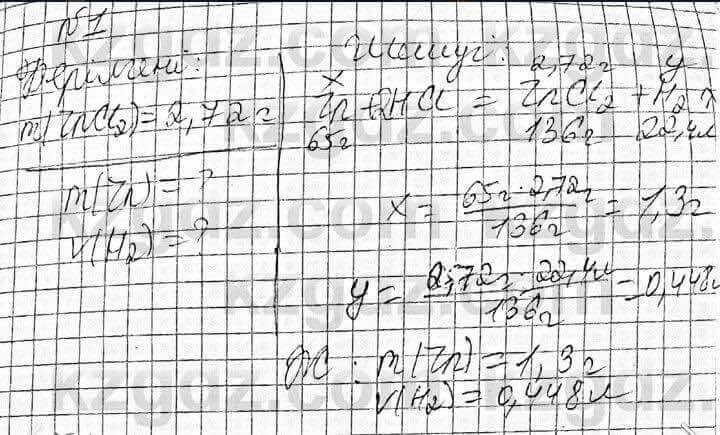 №1
Берілгені:
m(ZnCl₂)=2,72г
m(Zn)=?
V(H₂)=?
Шешуі:
x 2,72г y
Zn+2HCl = ZnCl₂+H₂↑
65г 136г 22,4л
x = 65г·2,72г / 136г = 1,3г
y = 2,72г·22,4л / 136г = 0,448л
Ж: m(Zn)=1,3г
V(H₂)=0,448л
kzgdz.com